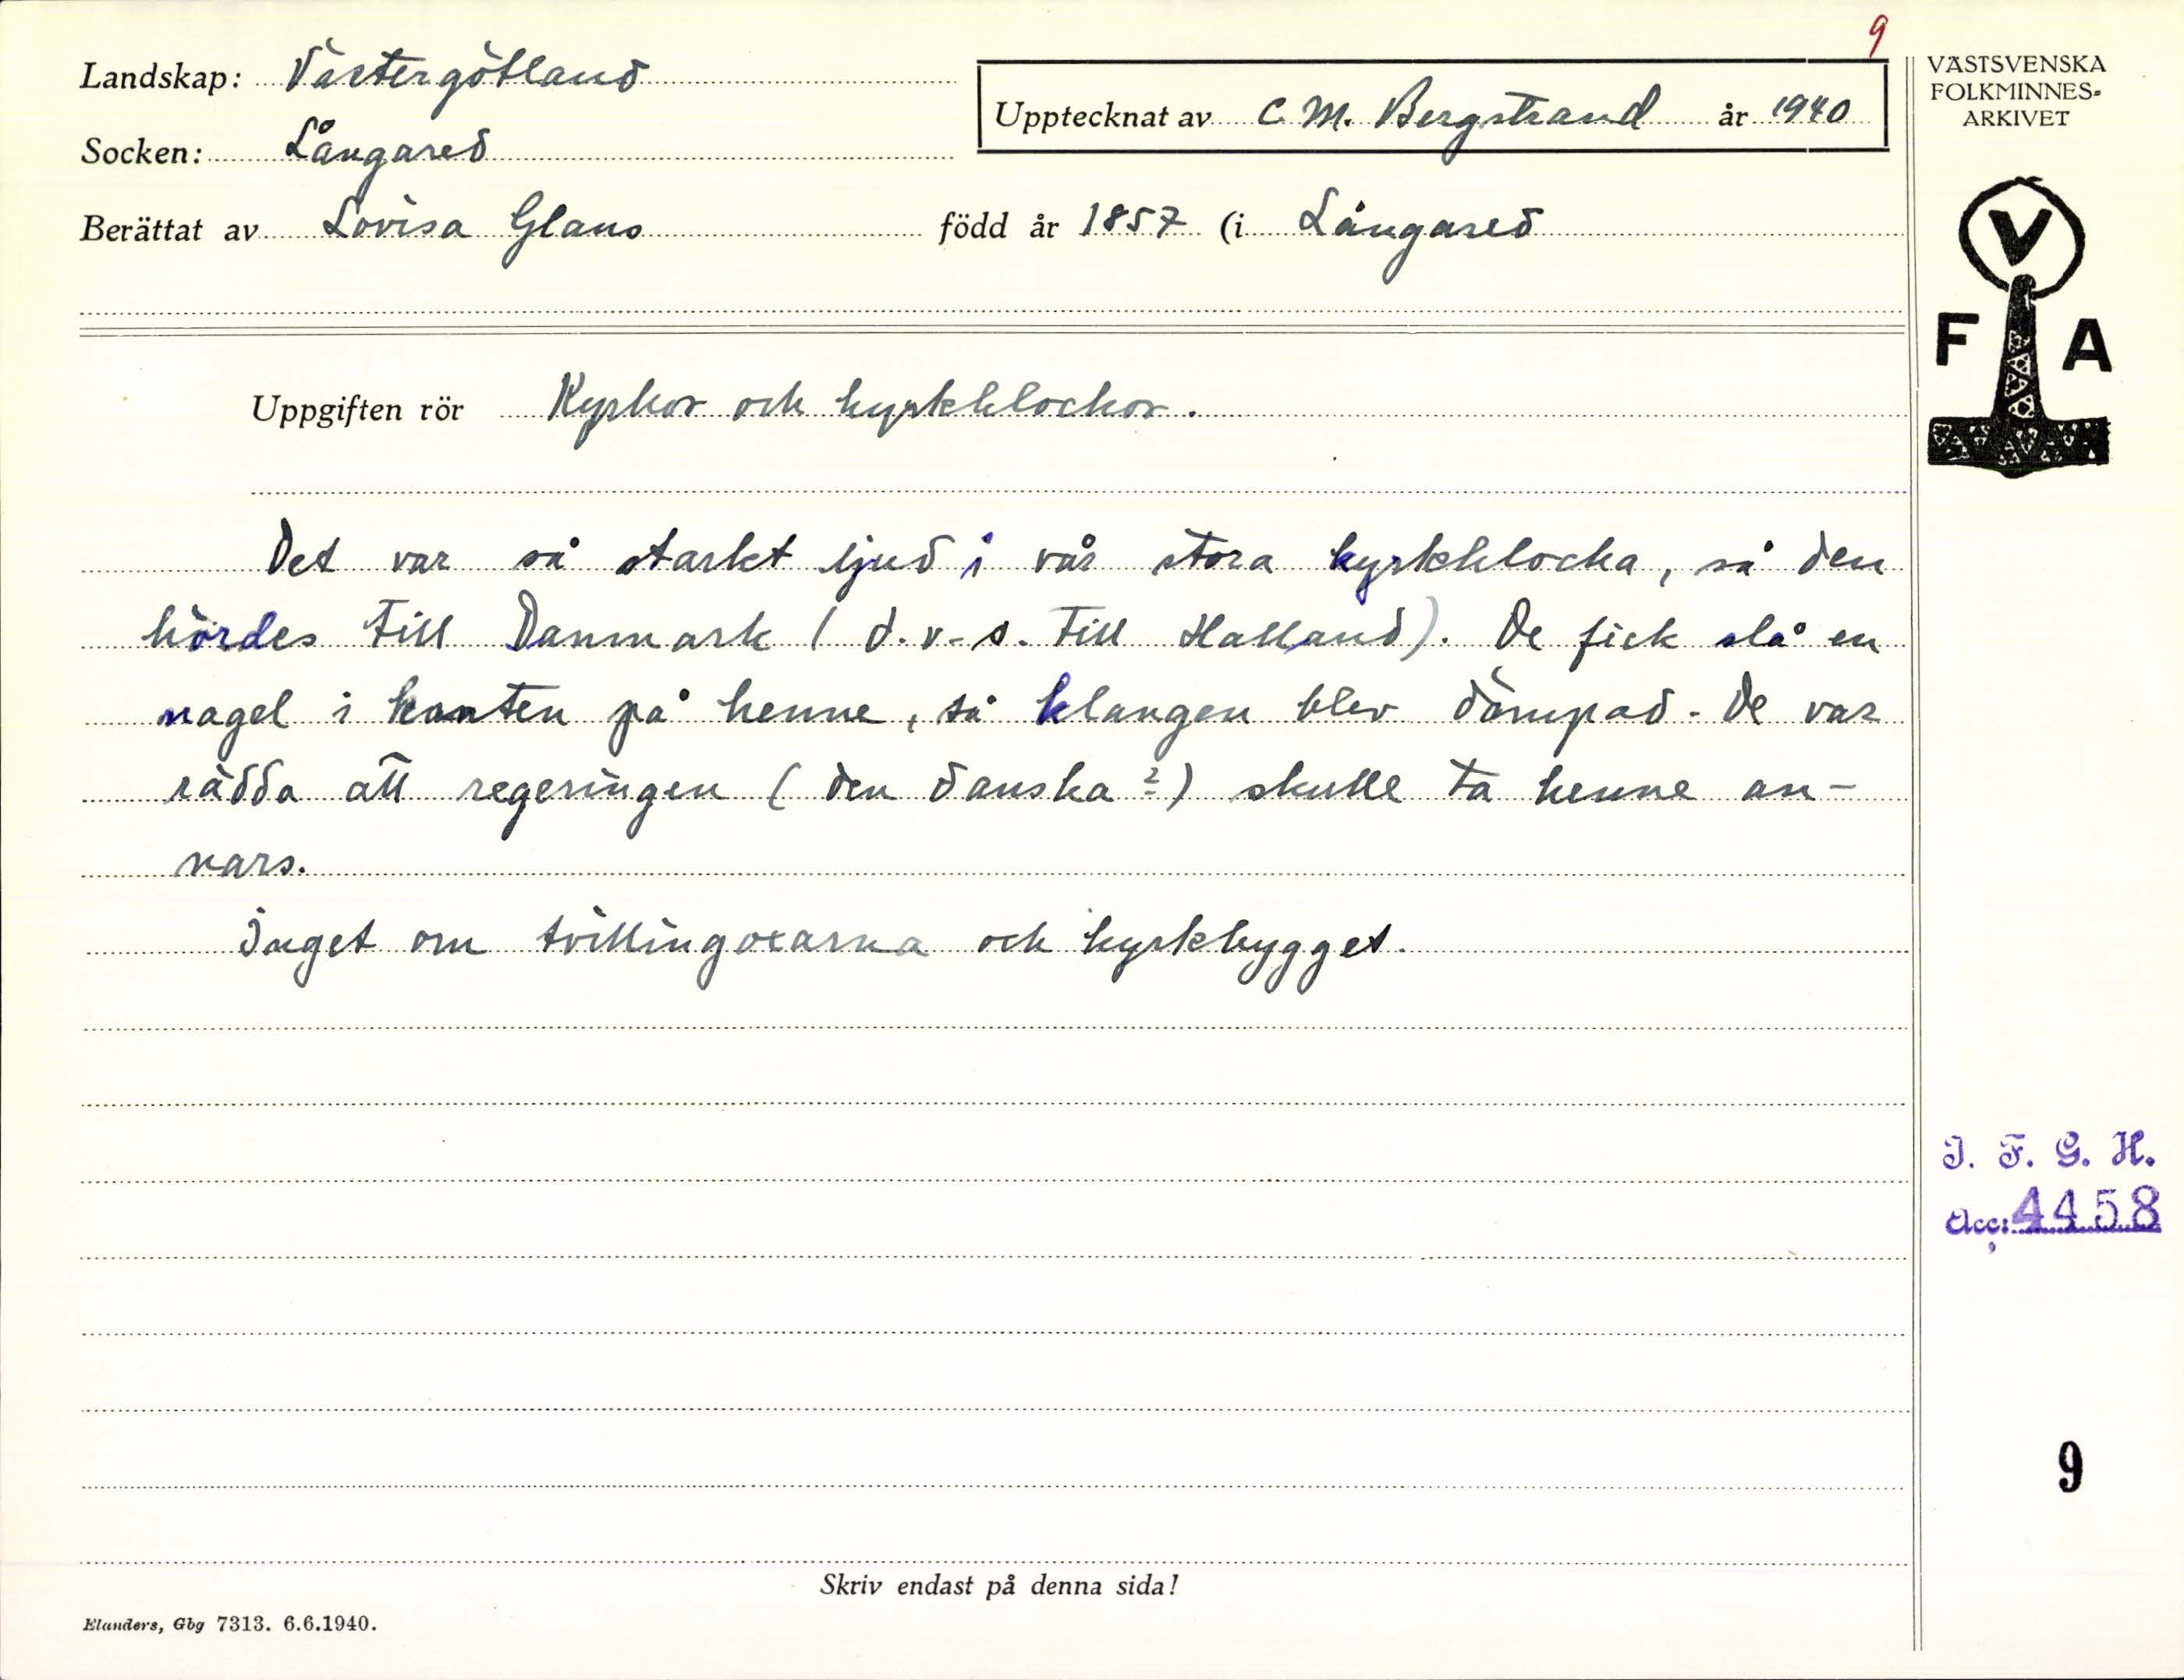 9
Landskap: Västergötland
Upptecknat av C. M. Bergstrand år 1940
Socken: Långared
Berättat av Lovisa Glans född år 1857 (i Långared
VÄSTSVENSKA
FOLKMINNES-
ARKIVET
V
F A
Uppgiften rör Kyrkor och kyrkklockor.
Det var så starkt ljud i vår stora kyrkklocka, så den
hördes till Danmark (d.v.s. till Halland). De fick slå en
nagel i kanten på henne, så klangen blev dämpad. De var
rädda att regeringen (den danska?) skulle ta henne an-
nars.
Inget om tvillingoxarna och kyrkbygget.
I. F. G. H.
Acc: 4458
9
Skriv endast på denna sida!
Elanders, Gbg 7313. 6.6.1940.